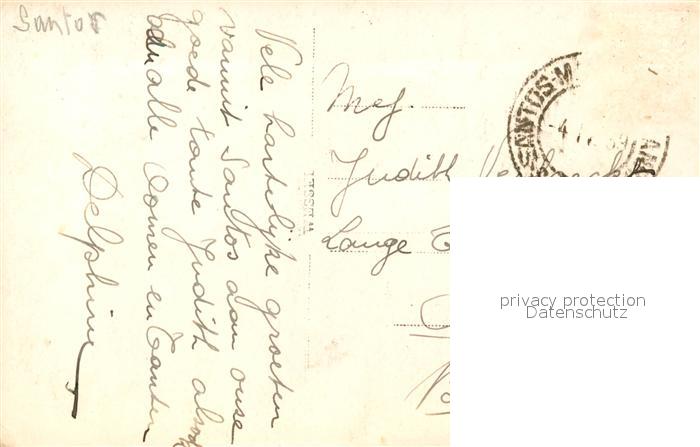 Santos
Vele hartelijke groeten
vanuit Santos aan onze
goede tante Judith alsook
aan alle Oomen en Tanten
Delphine
WESSEL
Mej.
Judith
Lange
SANTOS-M
privacy protection
Datenschutz